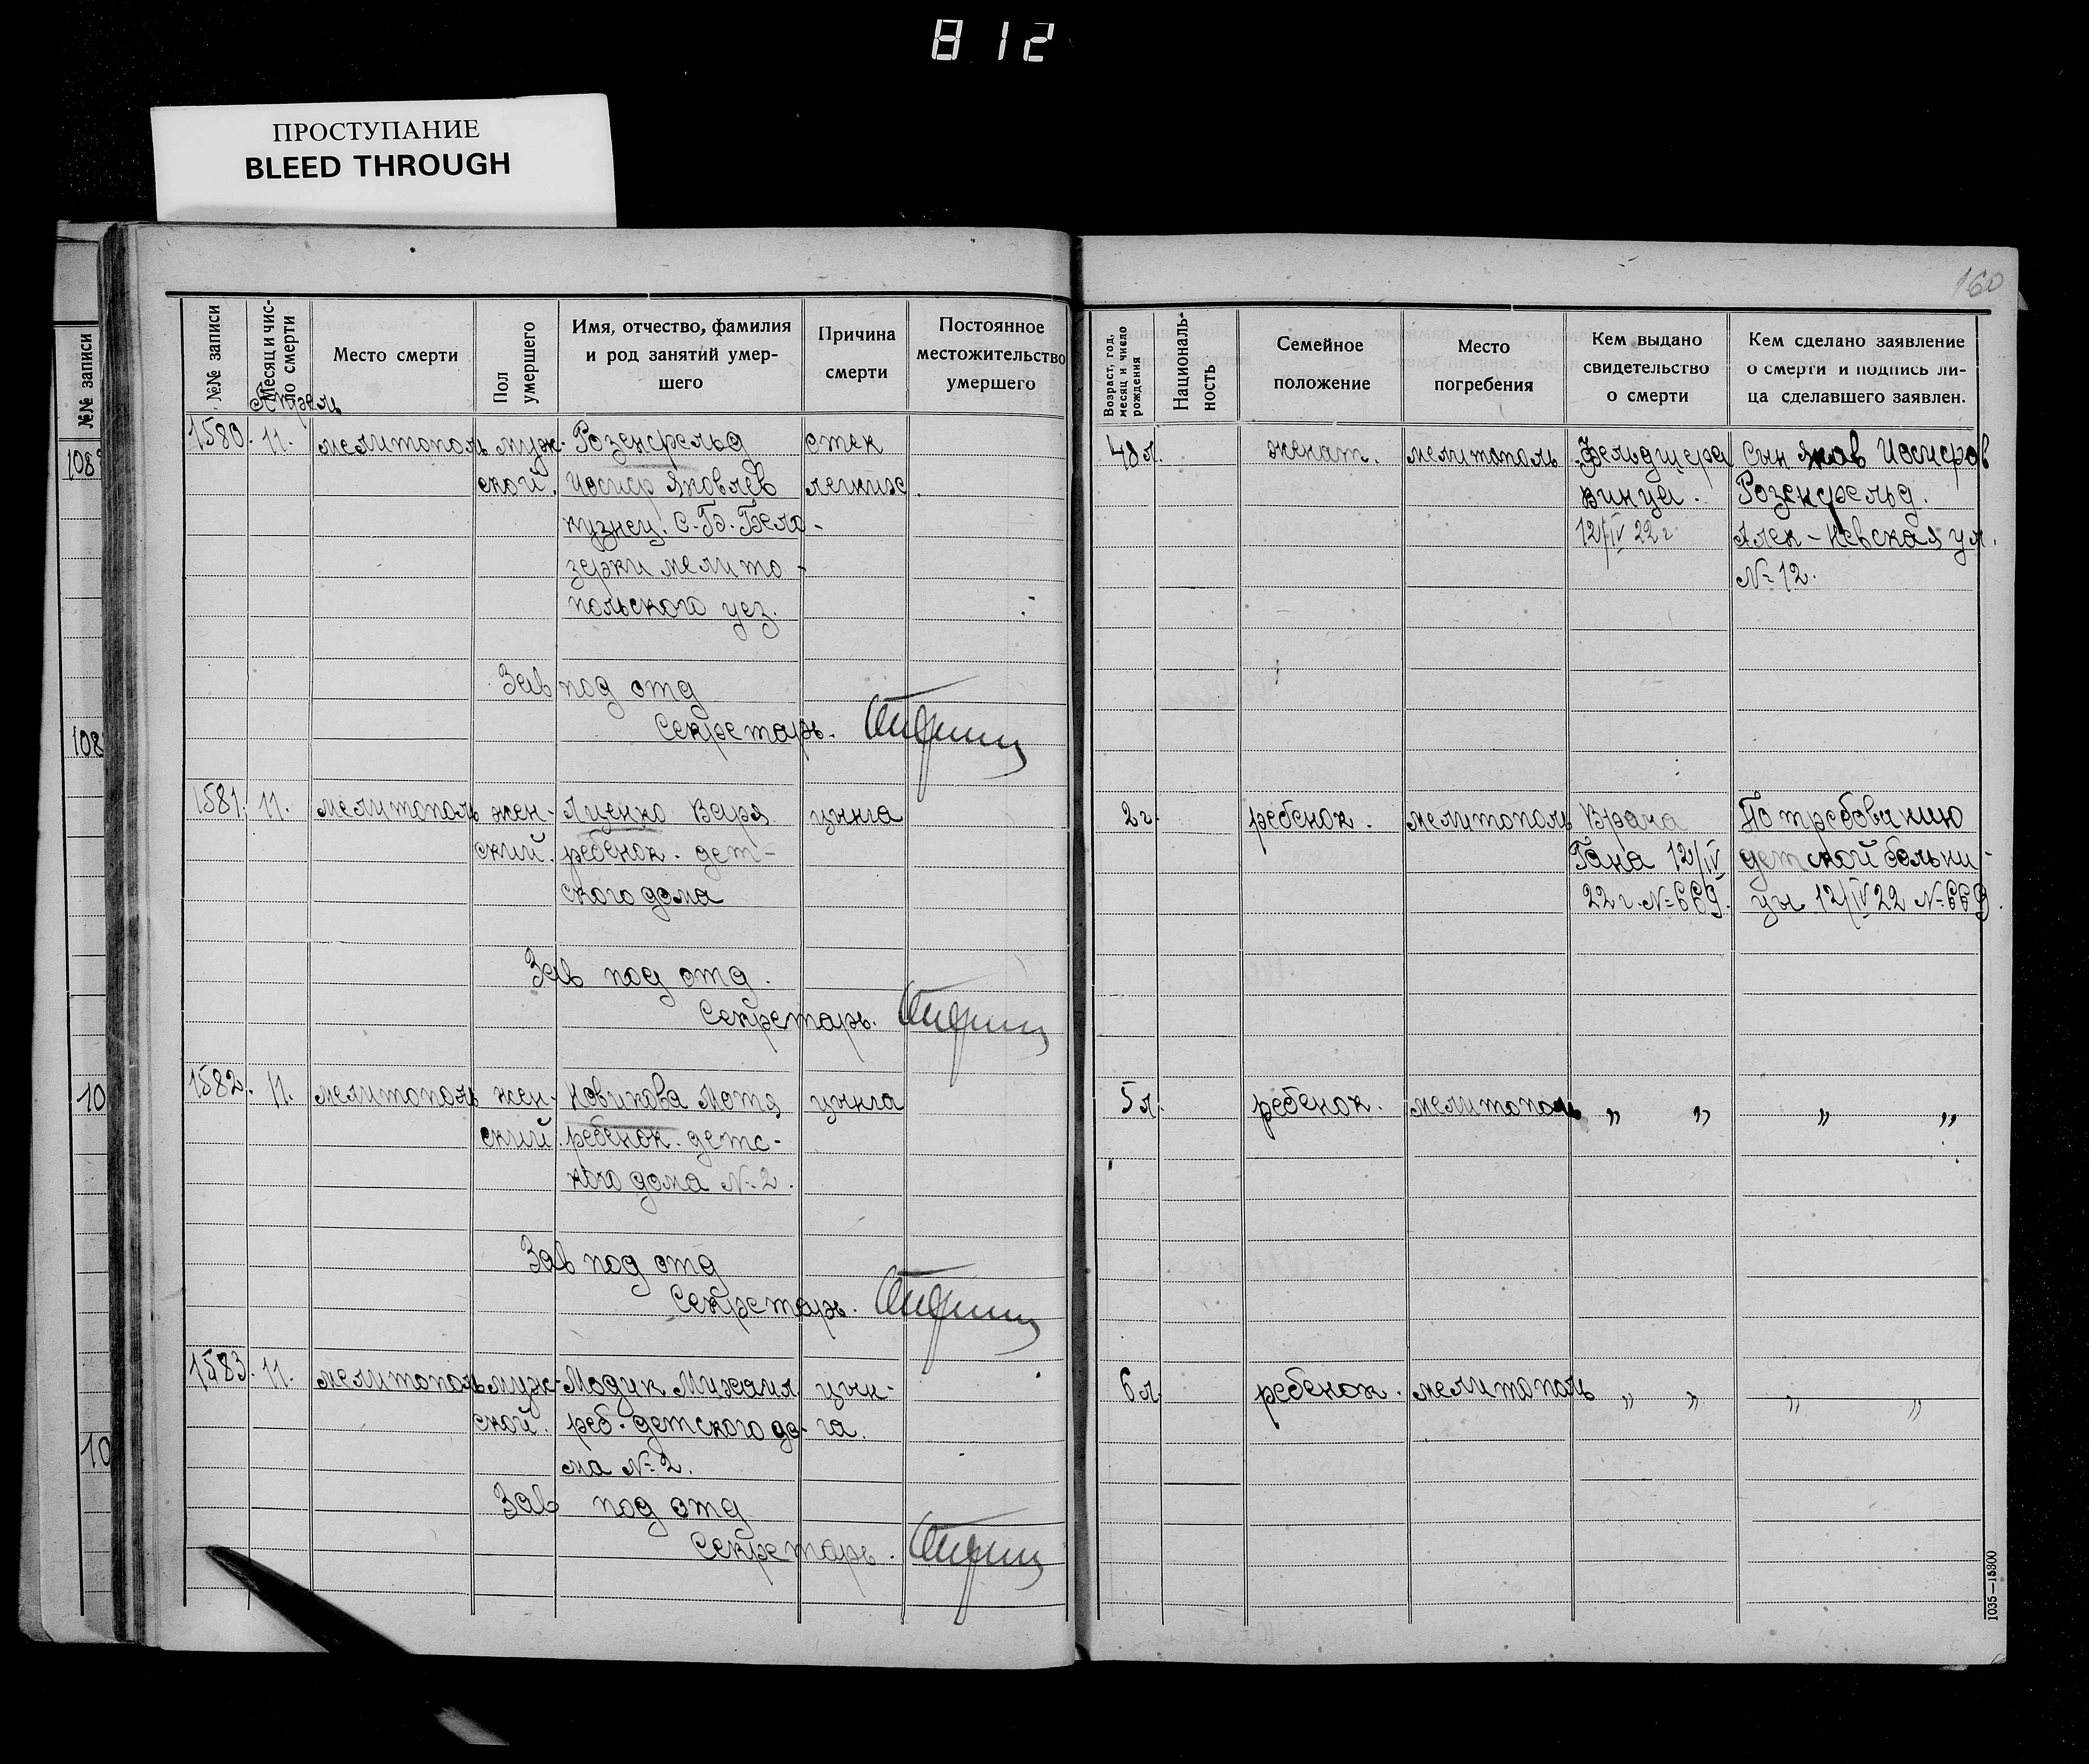 812
ПРОСТУПАНИЕ
BLEED THROUGH
160
№№ записи
№№ записи
Месяц и чис-
ло смерти
Место смерти
Пол
умершего
Имя, отчество, фамилия
и род занятий умер-
шего
Причина
смерти
Постоянное
местожительство
умершего
Возраст, год,
месяц и число
рождения
Националь-
ность
Семейное
положение
Место
погребения
Кем выдано
свидетельство
о смерти
Кем сделано заявление
о смерти и подпись ли-
ца сделавшего заявлен.
Апрель
108
1580. 11. мелитополь муж- Розенфельд отек 48 л. женат. мелитополь Фельдшера Сын Яков Иосифов
ской. Иосиф Яковлев легких. Розенфельд.
кузнец. С. Б. Бело- 12/IV 22 г Алек-Невская ул.
зерки мелито- № 12.
польского уез.
Зав под отд
Секретарь.
108
1581. 11. мелитополь жен- Яценко Варя цынга 2 г. ребенок. мелитополь Врача По требованию
ский. ребенок. дет- Гана 12/IV детской больни-
ского дома 22 г. № 669. цы 12/IV 22 № 669.
Зав под отд.
Секретарь.
10
1582. 11. мелитополь жен- Новикова Мотя цынга 5 л. ребенок. мелитополь „ „ „ „
ский. ребенок. детс-
кого дома № 2.
Зав под отд
Секретарь.
10
1583. 11. мелитополь муж- Модик Михаил цын- 6 л. ребенок. мелитополь „ „ „ „
ской. реб. детского до- га.
ма № 2.
Зав под отд
Секретарь.
1035—15800